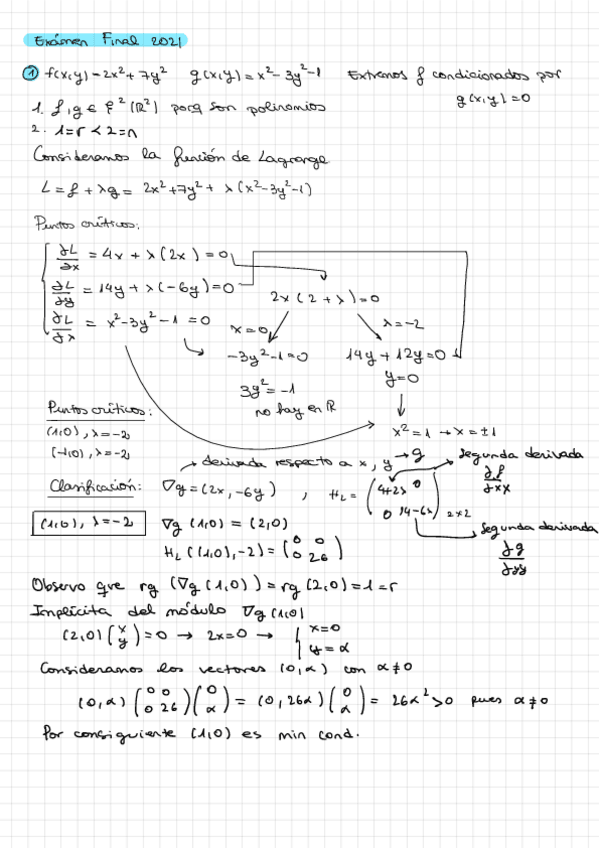 Exámen Final 2021
① f(x,y) = 2x² + 7y² g(x,y) = x² - 3y² - 1 Extremos f condicionados por
g(x,y) = 0
1. f, g ∈ ℓ²(ℝ²) porq son polinomios
2. 1 = r < 2 = n
Consideramos la función de Lagrange
L = f + λg = 2x² + 7y² + λ(x² - 3y² - 1)
Puntos críticos:
∂L/∂x = 4x + λ(2x) = 0
∂L/∂y = 14y + λ(-6y) = 0
2x(2 + λ) = 0
∂L/∂λ = x² - 3y² - 1 = 0
x = 0 λ = -2
-3y² - 1 = 0 14y + 12y = 0
3y² = -1 y = 0
no hay en ℝ
x² = 1 → x = ±1
Puntos críticos:
(1,0), λ = -2
(-1,0), λ = -2
derivada respecto a x, y → g
segunda derivada
∂f/∂xx
Clasificación: ∇g = (2x, -6y) , H_L = (4+2λ 0
0 14-6λ) 2x2
segunda derivada
∂g/∂yy
(1,0), λ = -2 ∇g (1,0) = (2,0)
H_L ((1,0), -2) = (0 0
0 26)
Observo que rg (∇g (1,0)) = rg (2,0) = 1 = r
Implícita del módulo ∇g (1,0)
(2,0) (x y) = 0 → 2x = 0 → { x = 0
y = α
Consideramos los vectores (0,α) con α ≠ 0
(0,α) (0 0 0 26) (0 α) = (0, 26α) (0 α) = 26α² > 0 pues α ≠ 0
Por consiguiente (1,0) es min cond.